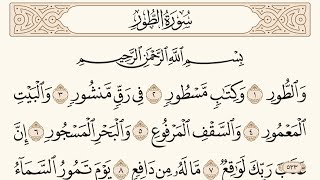 سُورَةُ الطُّورِ
بِسْمِ اللَّهِ الرَّحْمَٰنِ الرَّحِيمِ
وَالطُّورِ ١ وَكِتَٰبٍ مَّسْطُورٍ ٢ فِى رَقٍّ مَّنشُورٍ ٣ وَالْبَيْتِ
الْمَعْمُورِ ٤ وَالسَّقْفِ الْمَرْفُوعِ ٥ وَالْبَحْرِ الْمَسْجُورِ ٦ إِنَّ
رَبِّكَ لَوَٰقِعٌ ٧ مَّا لَهُ مِن دَافِعٍ ٨ يَوْمَ تَمُورُ السَّمَآءُ
٥٢٣